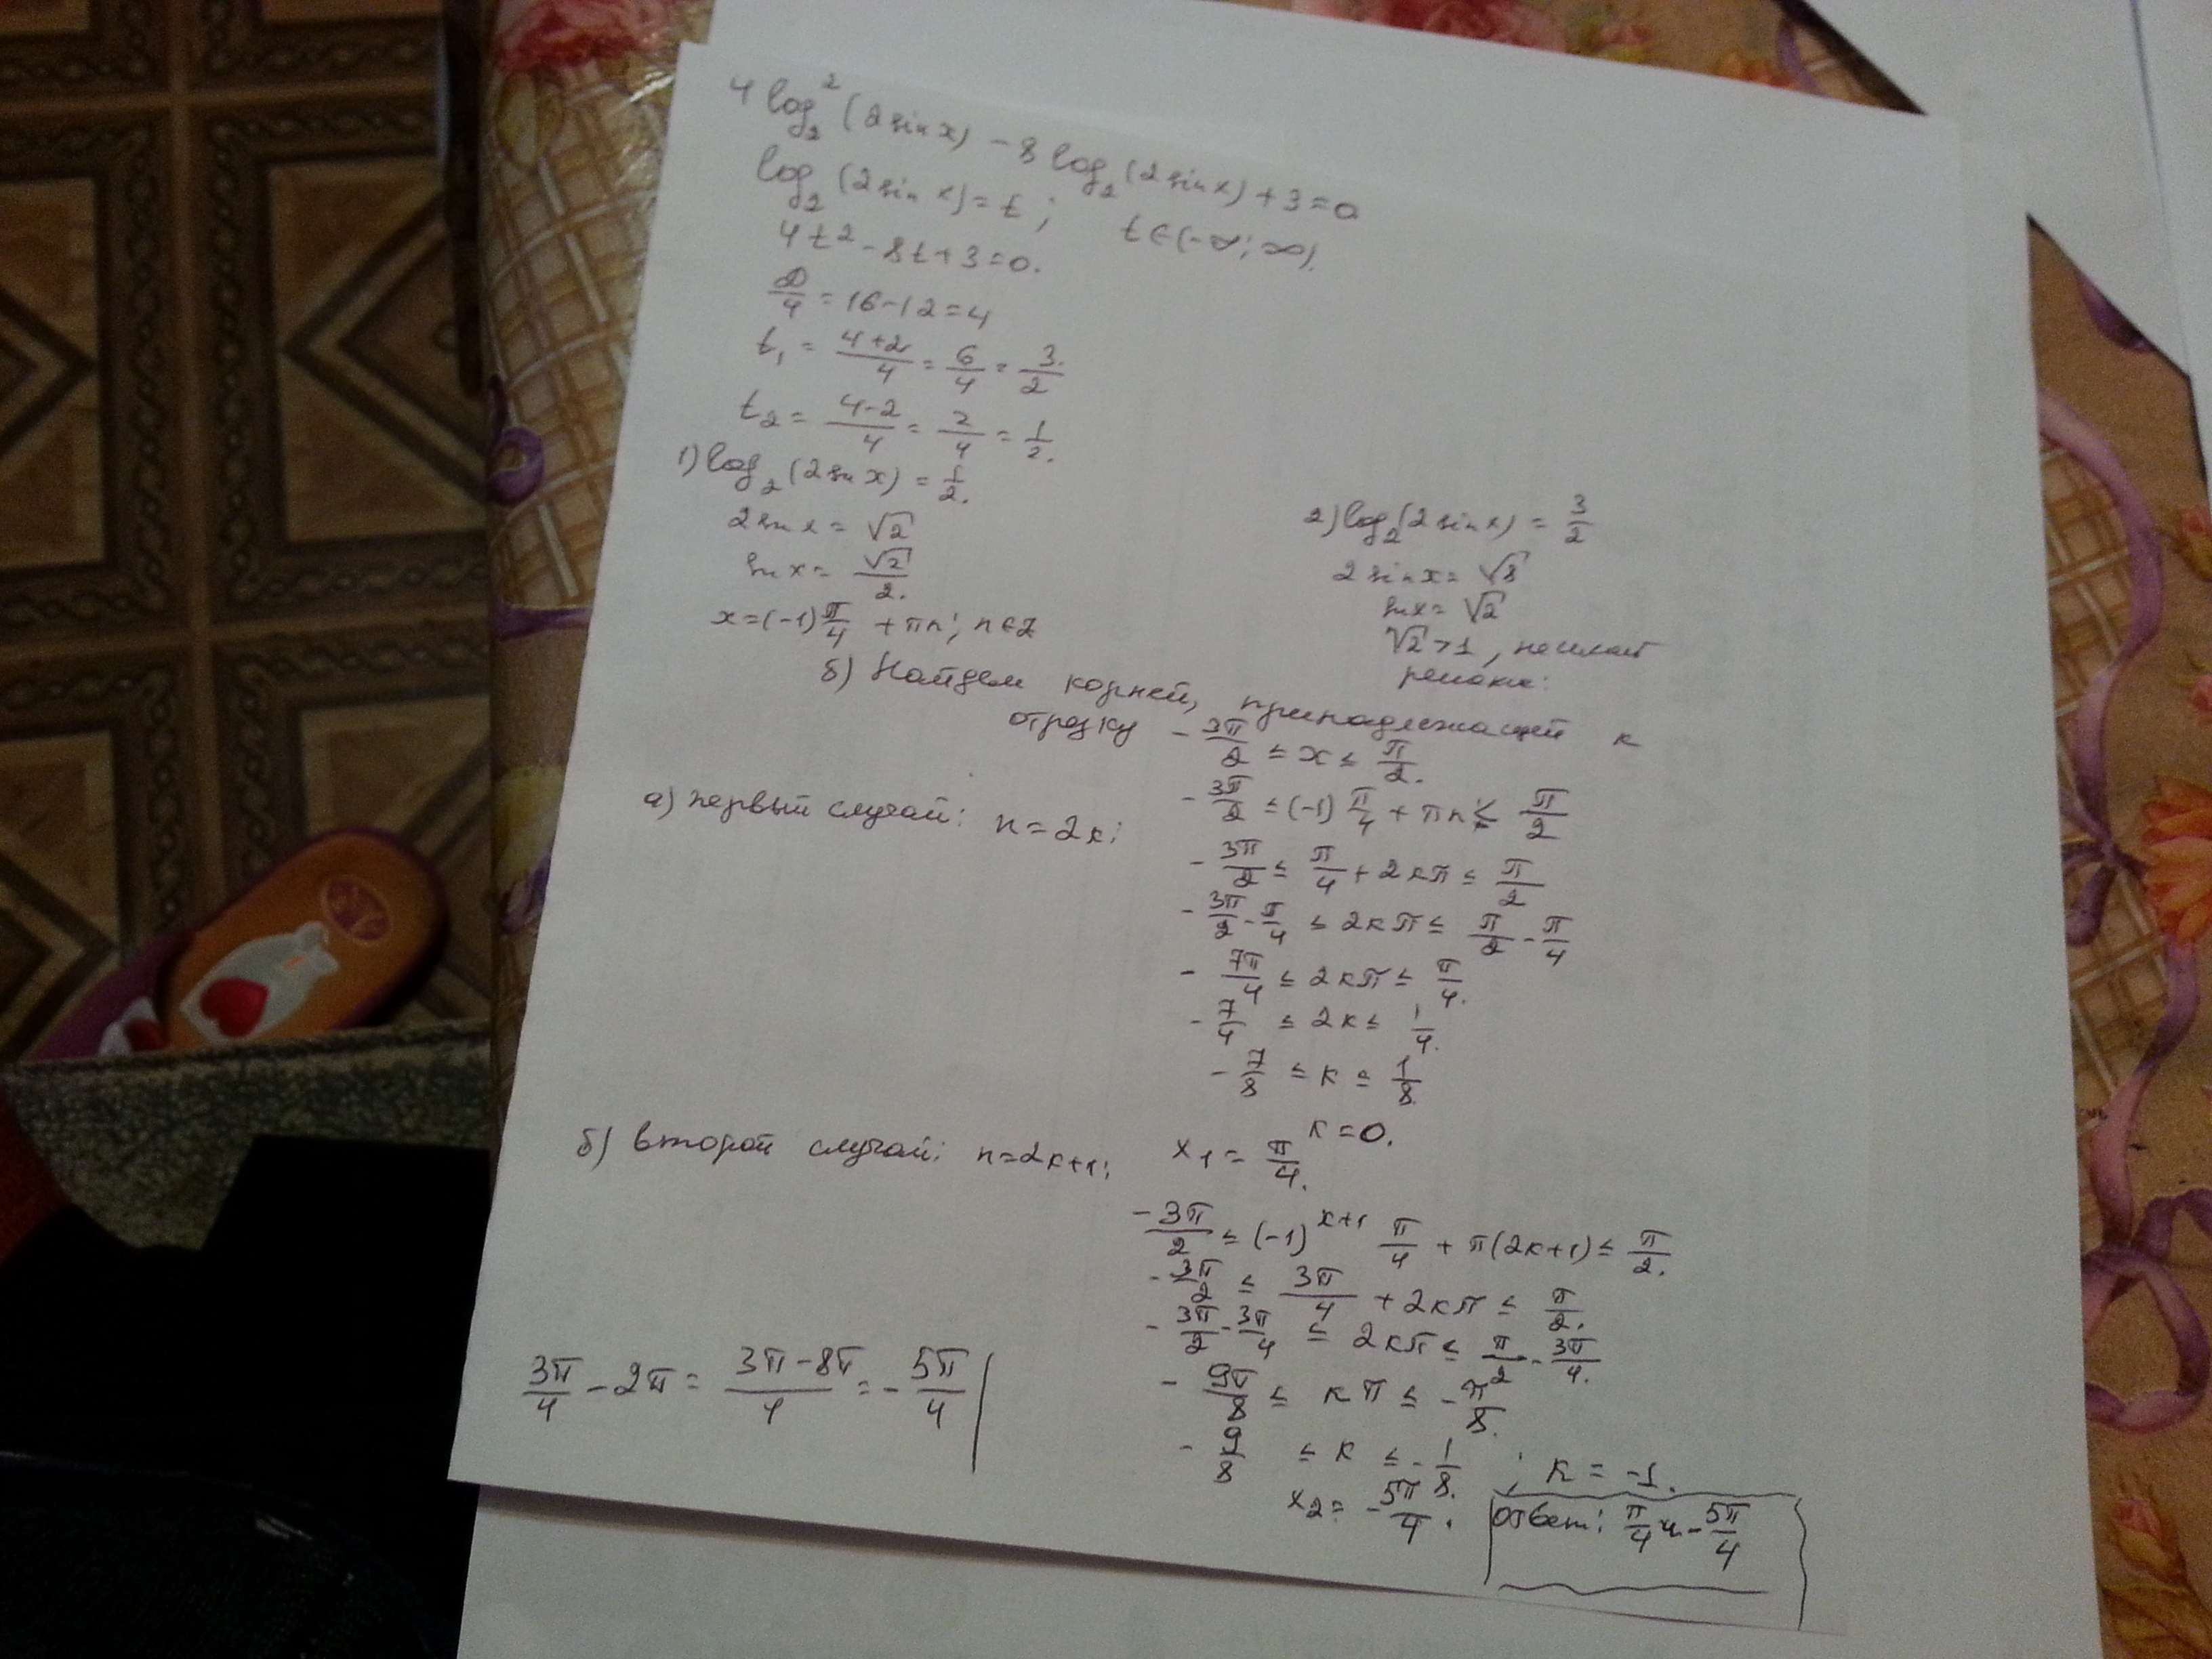 4 log₂² (2 sin x) - 8 log₂ (2 sin x) + 3 = 0
log₂ (2 sin x) = t ; t ∈ (-∞; ∞).
4t² - 8t + 3 = 0.
D/4 = 16 - 12 = 4
t₁ = (4+2)/4 = 6/4 = 3/2
t₂ = (4-2)/4 = 2/4 = 1/2.
1) log₂ (2 sin x) = 1/2.
2 sin x = √2
sin x = √2/2.
x = (-1) π/4 + πn; n ∈ Z
2) log₂ (2 sin x) = 3/2
2 sin x = √8
sin x = √2
√2 > 1 , не имеет
б) Найдем корней, принадлежащей к
отрезку - 3π/2 ≤ x ≤ π/2.
- 3π/2 ≤ (-1) π/4 + πn ≤ π/2
а) первый случай: n = 2к;
- 3π/2 ≤ π/4 + 2кπ ≤ π/2
- 3π/2 - π/4 ≤ 2кπ ≤ π/2 - π/4
- 7π/4 ≤ 2кπ ≤ π/4.
- 7/4 ≤ 2к ≤ 1/4.
- 7/8 ≤ к ≤ 1/8
к = 0.
x₁ = π/4.
б) второй случай: n = 2к+1;
- 3π/2 ≤ (-1)ᵏ⁺¹ π/4 + π(2к+1) ≤ π/2.
- 3π/2 ≤ 3π/4 + 2кπ ≤ π/2.
- 3π/2 - 3π/4 ≤ 2кπ ≤ π/2 - 3π/4.
- 9π/8 ≤ кπ ≤ - π/8.
- 9/8 ≤ к ≤ - 1/8. ; к = -1.
x₂ = - 5π/4.
3π/4 - 2π = (3π - 8π)/4 = - 5π/4
ответ: π/4 и - 5π/4